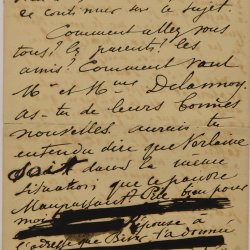 de continuer sur le sujet.
Comment allez vous
tous? les parents? les
amis? Comment vont
Mr et Mme Delannoy.
as-tu de leurs bonnes
nouvelles. aurais tu
entendu dire que Verlaine
soit dans la même
situation que ce pauvre
Maupassant
pour
moi
Réponse à
l'adresse que
t'a donné